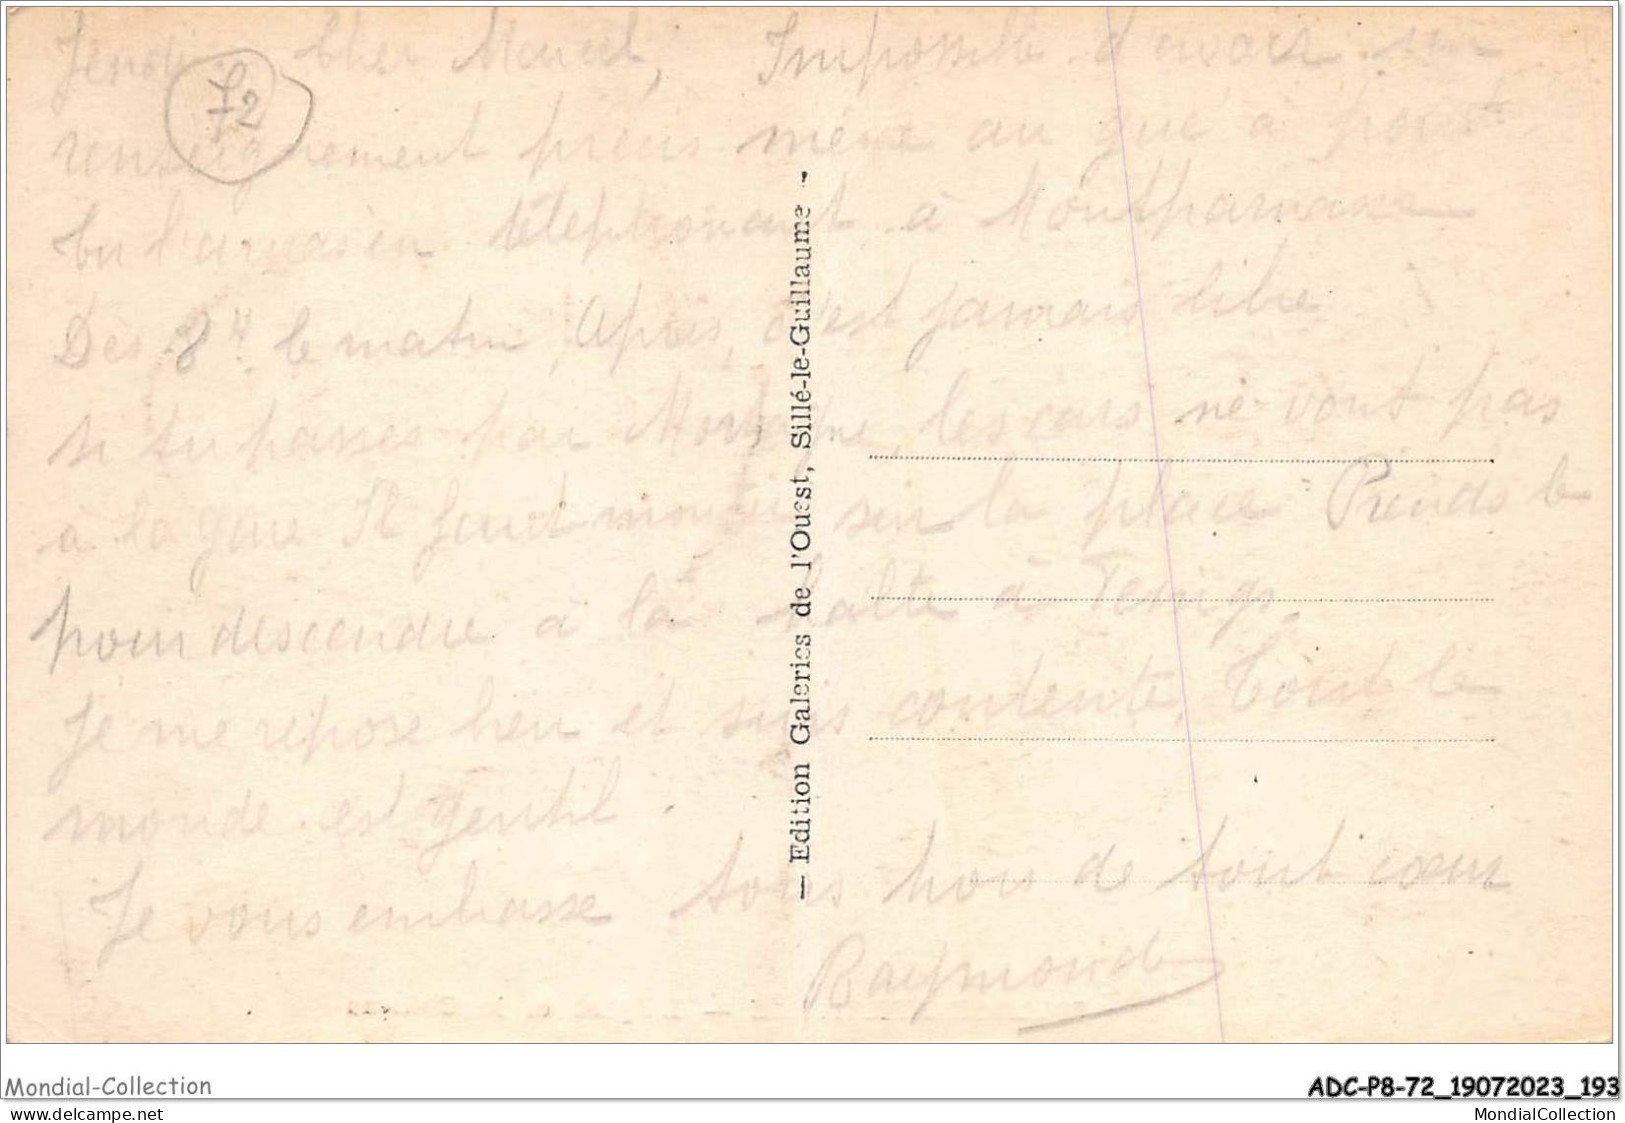 Jeudi. Cher Marcel, Impossible d'avoir un
72
renseignement précis même au
téléphonant à Montparnasse
Des 8 H le matin, Après, c'est jamais libre
si tu passes par les cars ne vont pas
à la gare Il faut monter sur la place Prends le
pour descendre à la halte à
Je me repose bien et suis contente, Tout le
monde est gentil.
Je vous embrasse tous trois de tout cœur
Raymonde
— Edition Galeries de l'Ouest, Sillé-le-Guillaume -
Mondial-Collection
ADC-P8-72_19072023_193
www.delcampe.net
MondialCollection